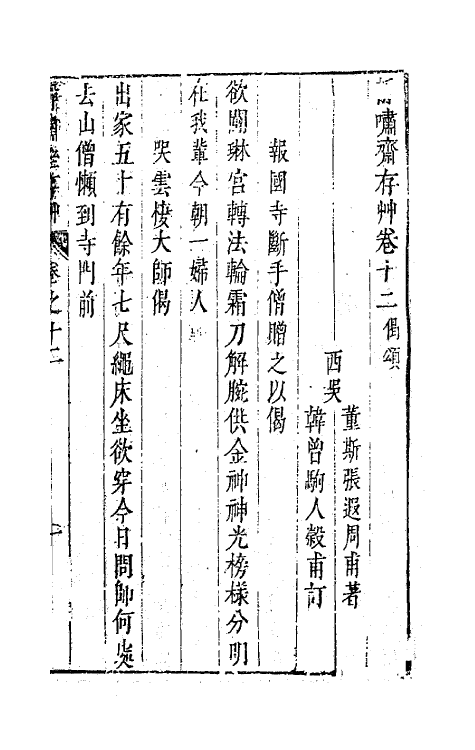 嘯齋存艸卷十二 偈頌
西吳
董斯張遐周甫著
韓曾駒人穀甫訂
報國寺斷手僧贈之以偈
欲闢琳宮轉法輪霜刀解腕供金神神光榜樣分明
在我輩今朝一婦人
哭雲棲大師偈
出家五十有餘年七尺繩床坐欲穿今日問師何處
去山僧懶到寺門前
卷之十二
一